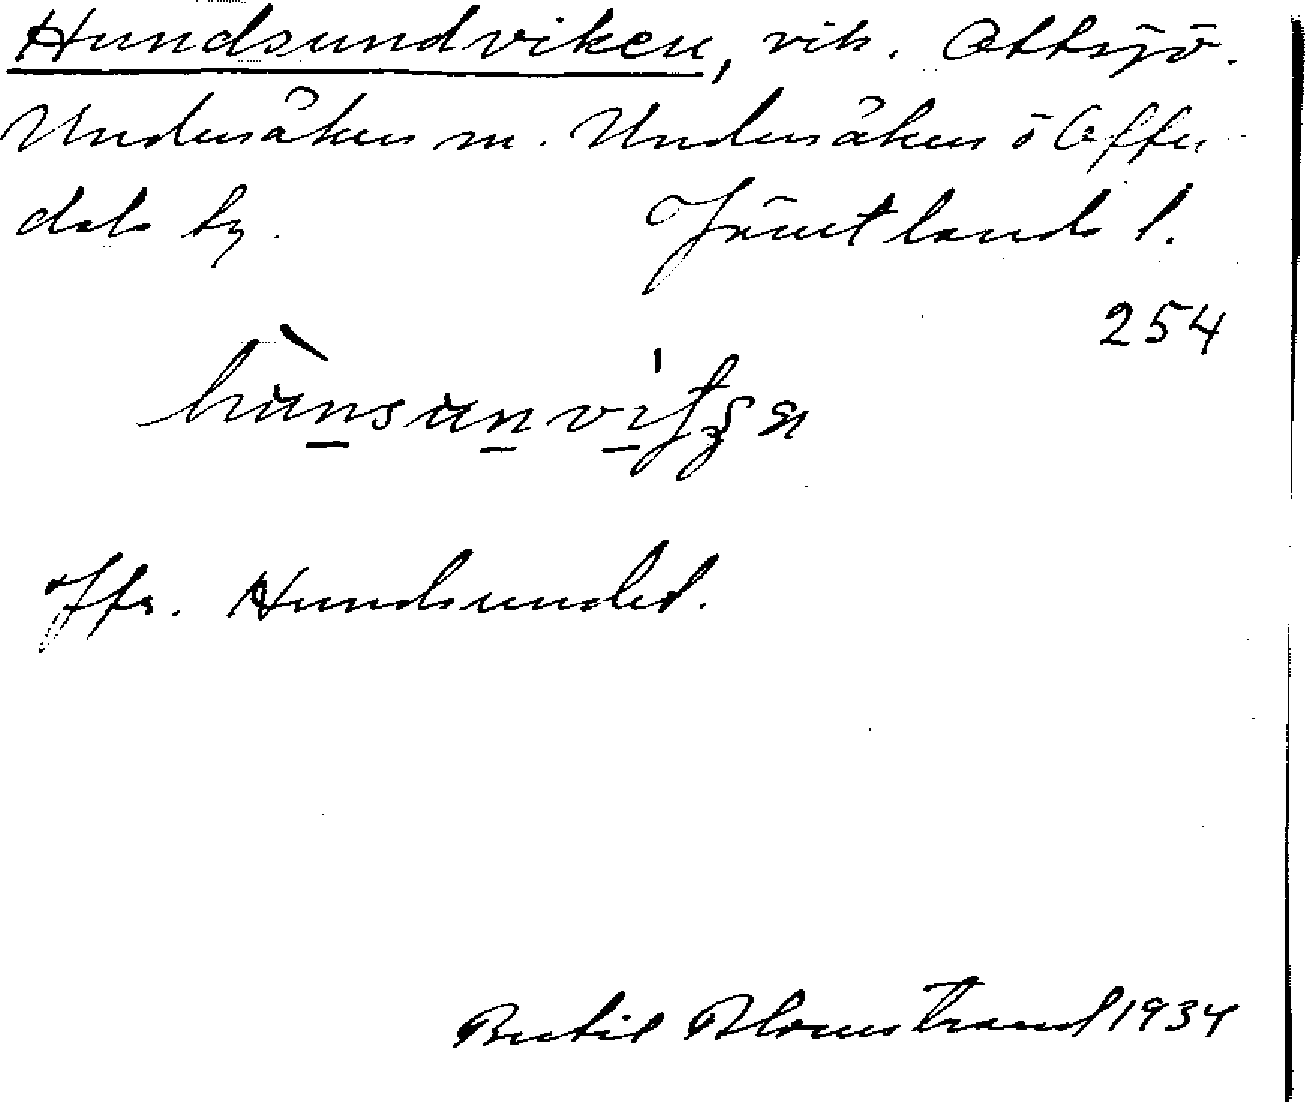 Hundsundviken, vik. Ottsjö.
Undersåkers sn. Undersåkers o Offer-
dals tg. Jämtlands l.
254
Jfr. Hundsundet.
Bertil Blomstrand 1934